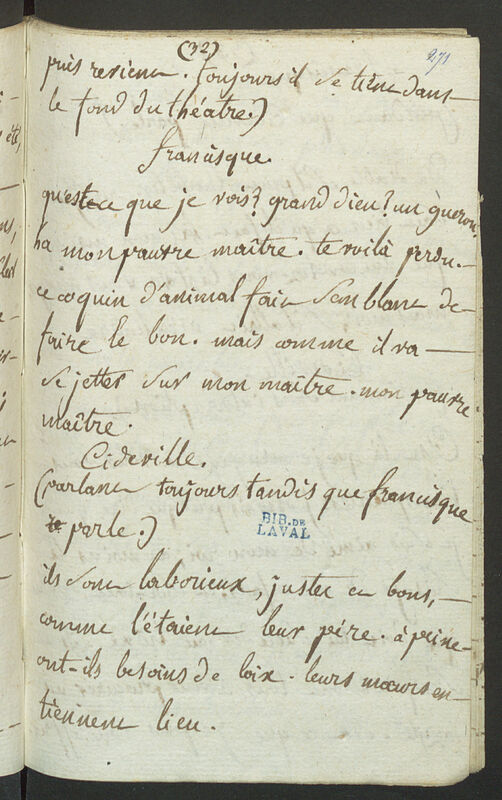 (32)
271
puis revient. (toujours il se tient dans
le fond du théatre.)
francisque.
qu'estce que je vois? grand dieu? un guenon
ha mon pauvre maître. te voilà perdu.
ce coquin d'animal fait semblant de
faire le bon. mais comme il va
se jetter sur mon maître. mon pauvre
maître.
Cideville.
(parlant toujours tandis que francisque
parle.)
BIB. DE
LAVAL
ils sont laborieux, justes et bons,
comme l'étaient leur pére. à peine
ont-ils besoins de loix. leurs mœurs en
tiennent lieu.